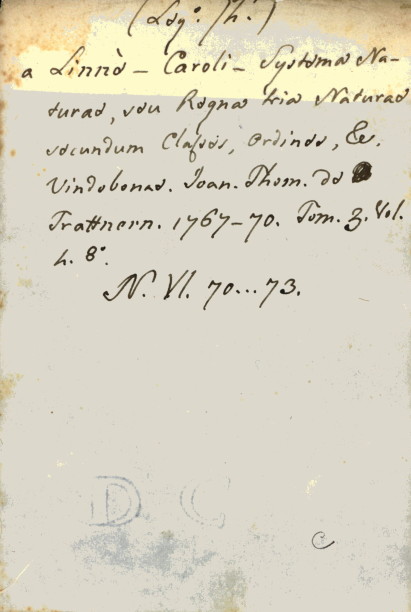 a Linnè - Caroli - Systema Na-
turae, seu Regna tria Naturae
secundum Classes, Ordines, &c.
Vindobonae. Ioan. Thom. de
Trattnern. 1767-70. Tom. 3. Vol.
4. 8°.
N. VI. 70...73.
D. C
C